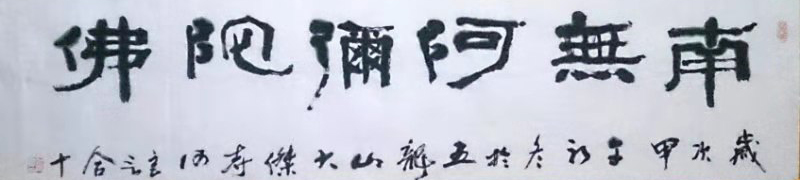 南無阿彌陀佛
歲次甲午初冬於五龍山大傑寺合十